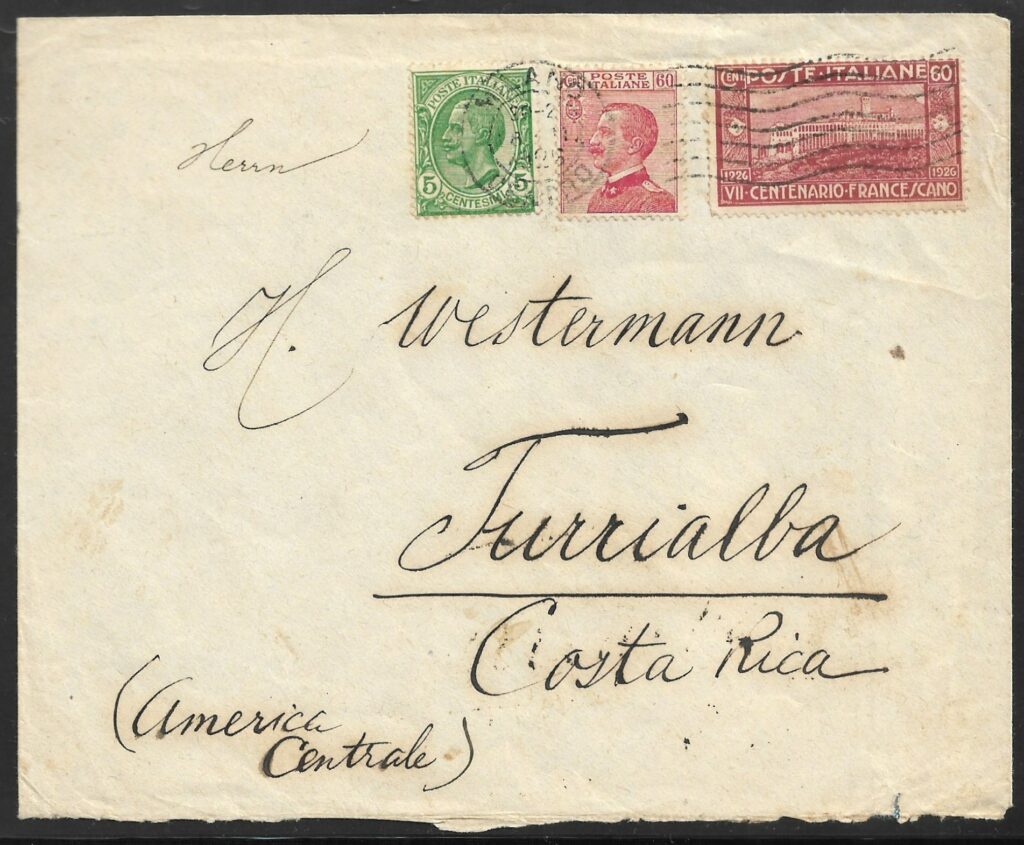 POSTE ITALIANE
5 5
CENTESIMI
POSTE
ITALIANE 60
CENT. POSTE·ITALIANE 60
1926 1926
VII·CENTENARIO·FRANCESCANO
Herrn
H. Westermann
Turrialba
Costa Rica
(America
Centrale)